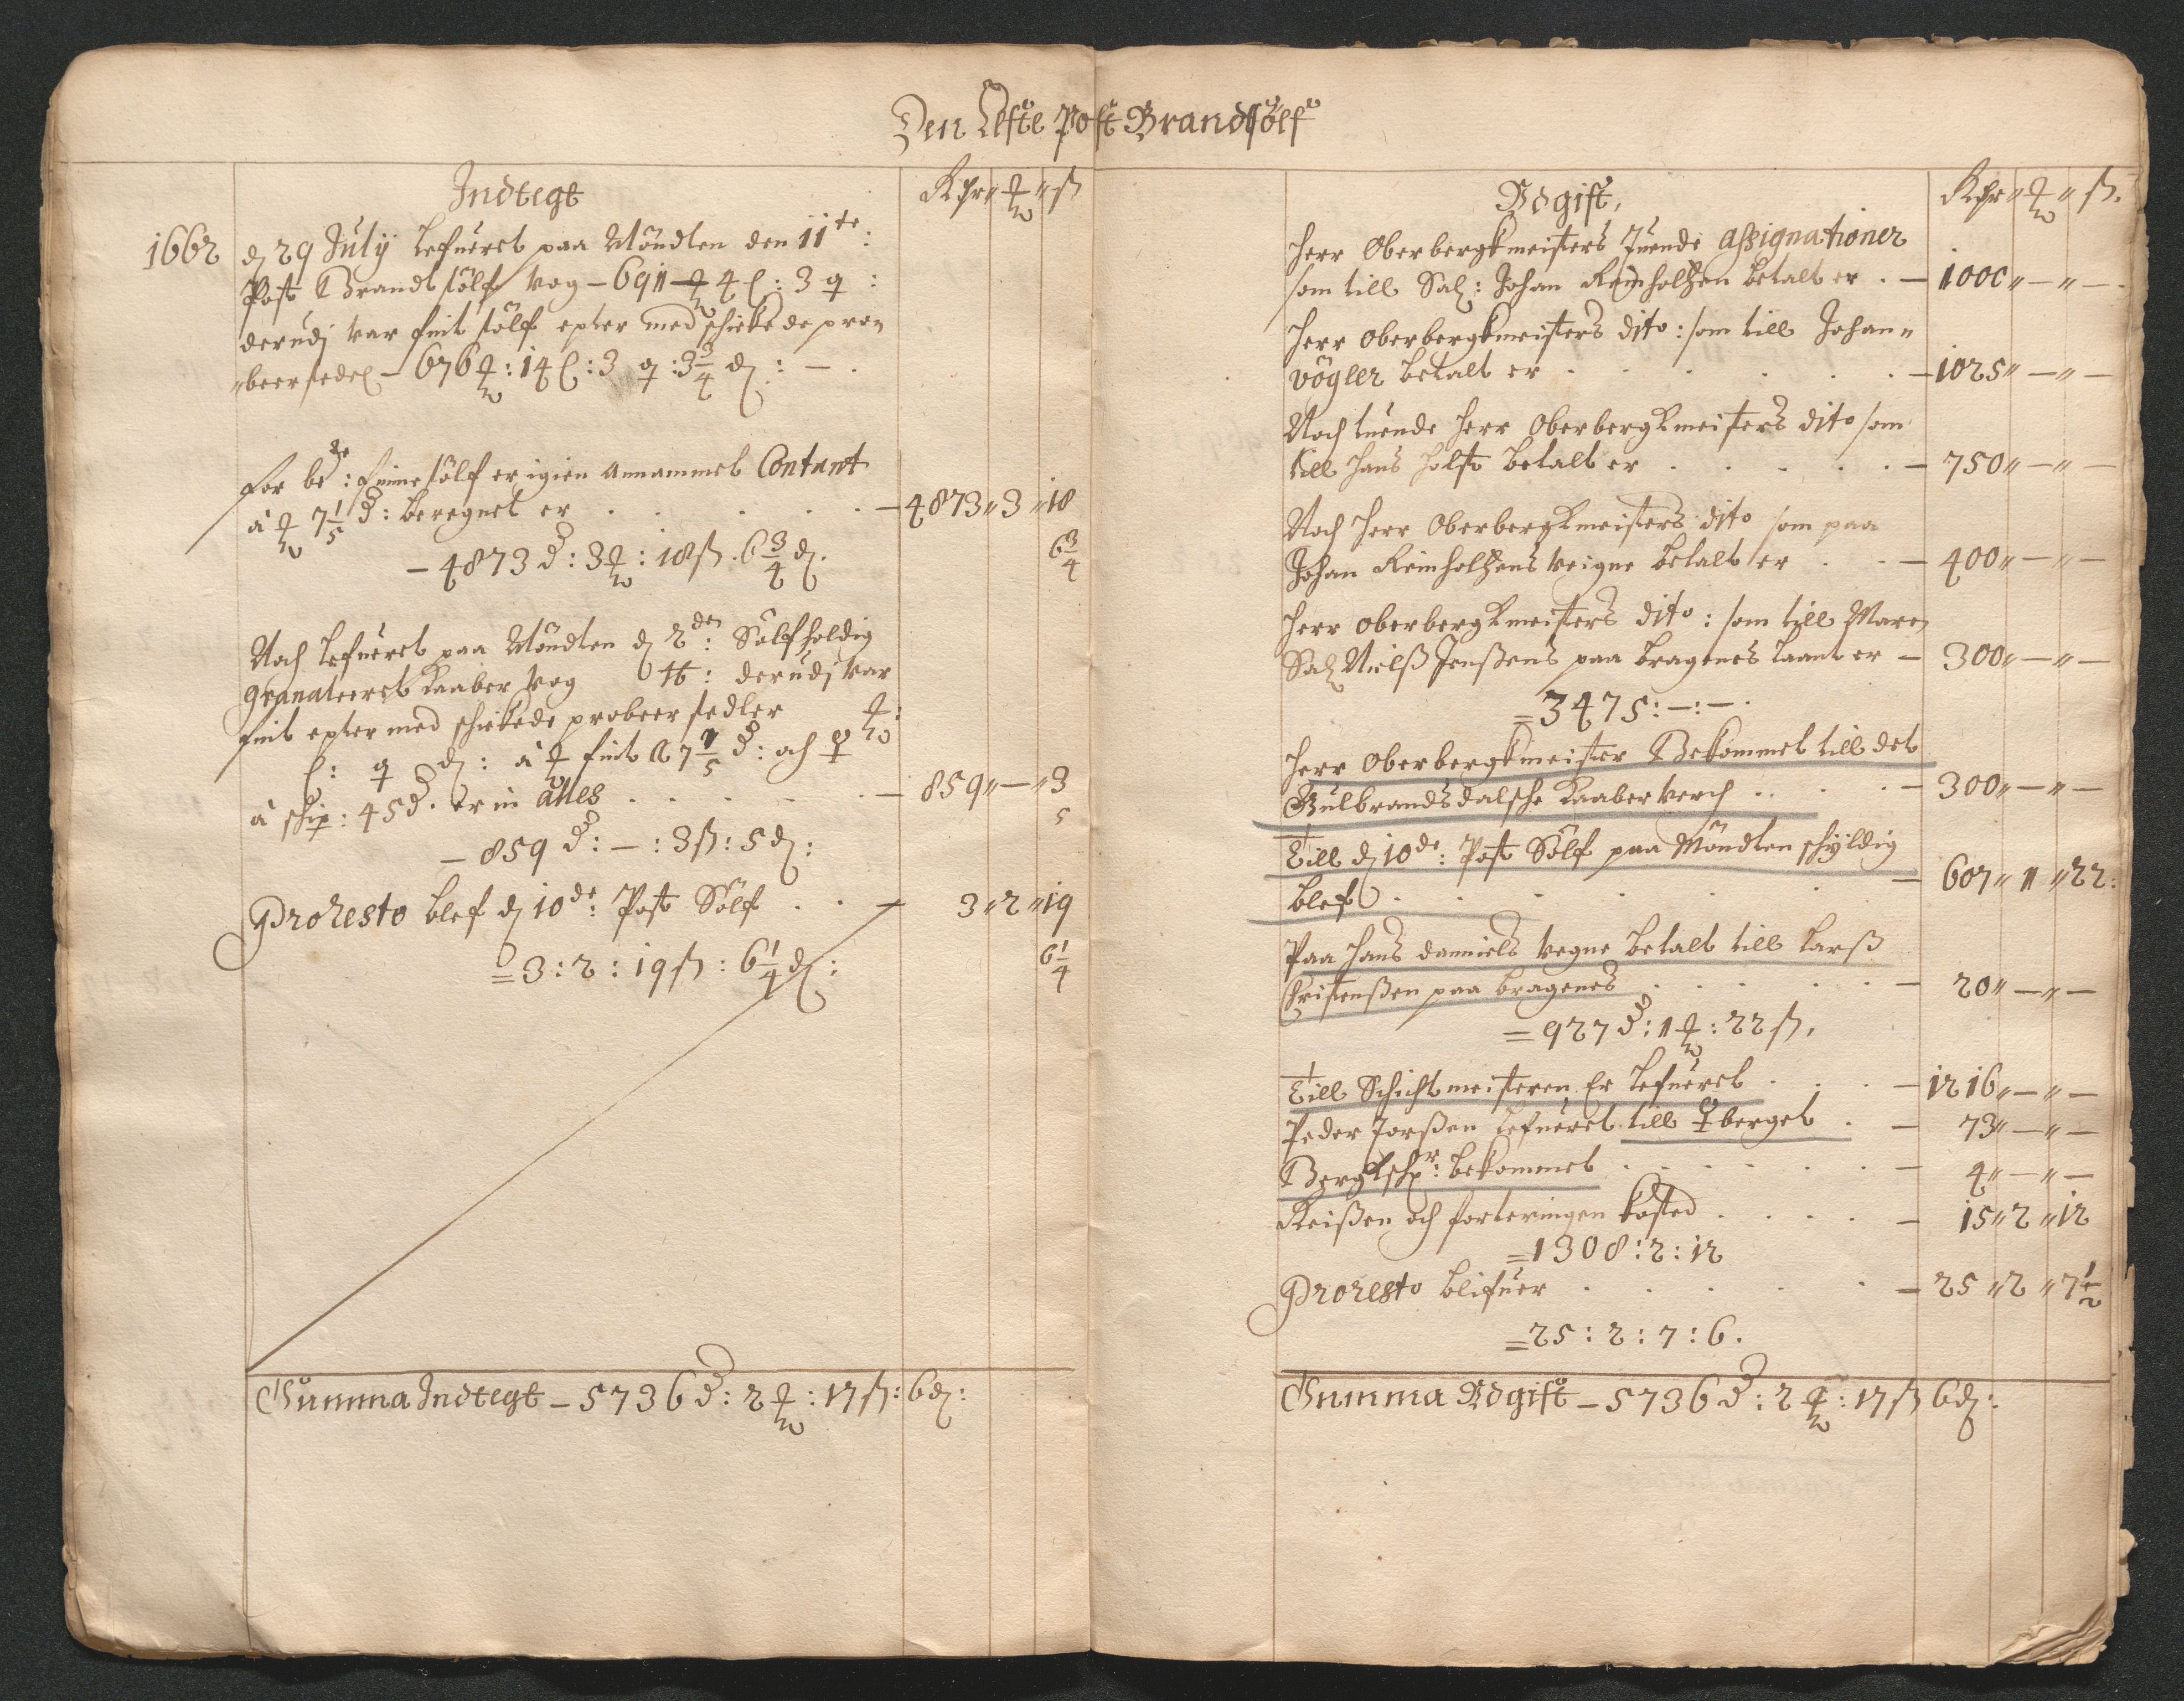 Den Elfte Post Brandsölf
Indtegt
Rdr " ℳ " ß
1662
d 29 Julÿ Lefueret paa Mÿndten den 11te:
Post Brandt sölf vog - 691 ℳ 4 l: 3 q:
derudj var fint sölf epter med schickede pro=
beersedel - 676 ℳ: 14 l: 3 q: 3 3/4 d: - .
for bete: fiine sölf er igien annammet Contant
à ℳ 7 1/5 d: beregnet er . . . . . - 4873 " 3 " 18
- 4873 d: 3 ℳ: 18 ß. 6 3/4 d. 6 3/4
Noch Lefueret paa Möndten d 2den: Sölfholdig
granaleeret Kaaber vog ℔: derudj var
fint epter med schickede probeer sedler ℳ:
l: q d: à ℳ fint à 7 1/5 d: och ♀
à schip: 45 d. er in alles . . . . . - 859 " - " 3
- 859 d: - : 3 ß: 5 d: 5
Proresto blef d 10de: Post Sölf . . - 3 " 2 " 19
= 3: 2: 19 ß: 6 1/4 d: 6 1/4
Summa Indtegt - 5736 d: 2 ℳ: 17 ß: 6 d:
Vdgift,
Rdr " ℳ " ß.
Herr Oberbergkmeisters Tuende assignationer
som till Sal: Johan Reinholtzen betalt er . - 1000 " - " -
Herr Oberbergkmeisters dito: som till Johan "
Vögler betalt er . . . . . . - 1025 " - " -
Noch tuende Herr Oberbergkmeisters dito som
till Hans Holst betalt er . . . . . - 750 " - " -
Noch Herr Oberbergkmeisters dito som paa
Johan Reinholtzens veigne betalt er . . - 400 " - " -
Herr Oberbergkmeisters dito: som till Maren
Sal Nielß Jenßens paa bragenes laant er - 300 " - " -
= 3475: -: - .
Herr Oberbergkmeister Bekommet till det
Gulbrandsdalsche Kaaberverch . . . . - 300 " - " -
Till d 10de: Post Sölf paa Möndten schÿldig
blef . . . . . . - 607 " 1 " 22:
Paa Hans danniels vegne betalt till Larß
Christenßen paa bragenes . . . . . - 20 " - " -
= 927 d: 1 ℳ: 22 ß.
Till Schichtmeisteren Er Lefueret . . . - 1216 " - " -
Peder Jorßen Lefueret till ♀berget . - 73 " - " -
Bergksch r: bekommet . . . . . . - 4 " - " -
Reißen och forteringen kosted . . . . - 15 " 2 " 12
= 1308: 2: 12
Proresto blifuer . . . . . - 25 " 2 " 7 1/2
= 25: 2: 7: 6.
Summa Vdgift - 5736 d: 2 ℳ: 17 ß 6 d: